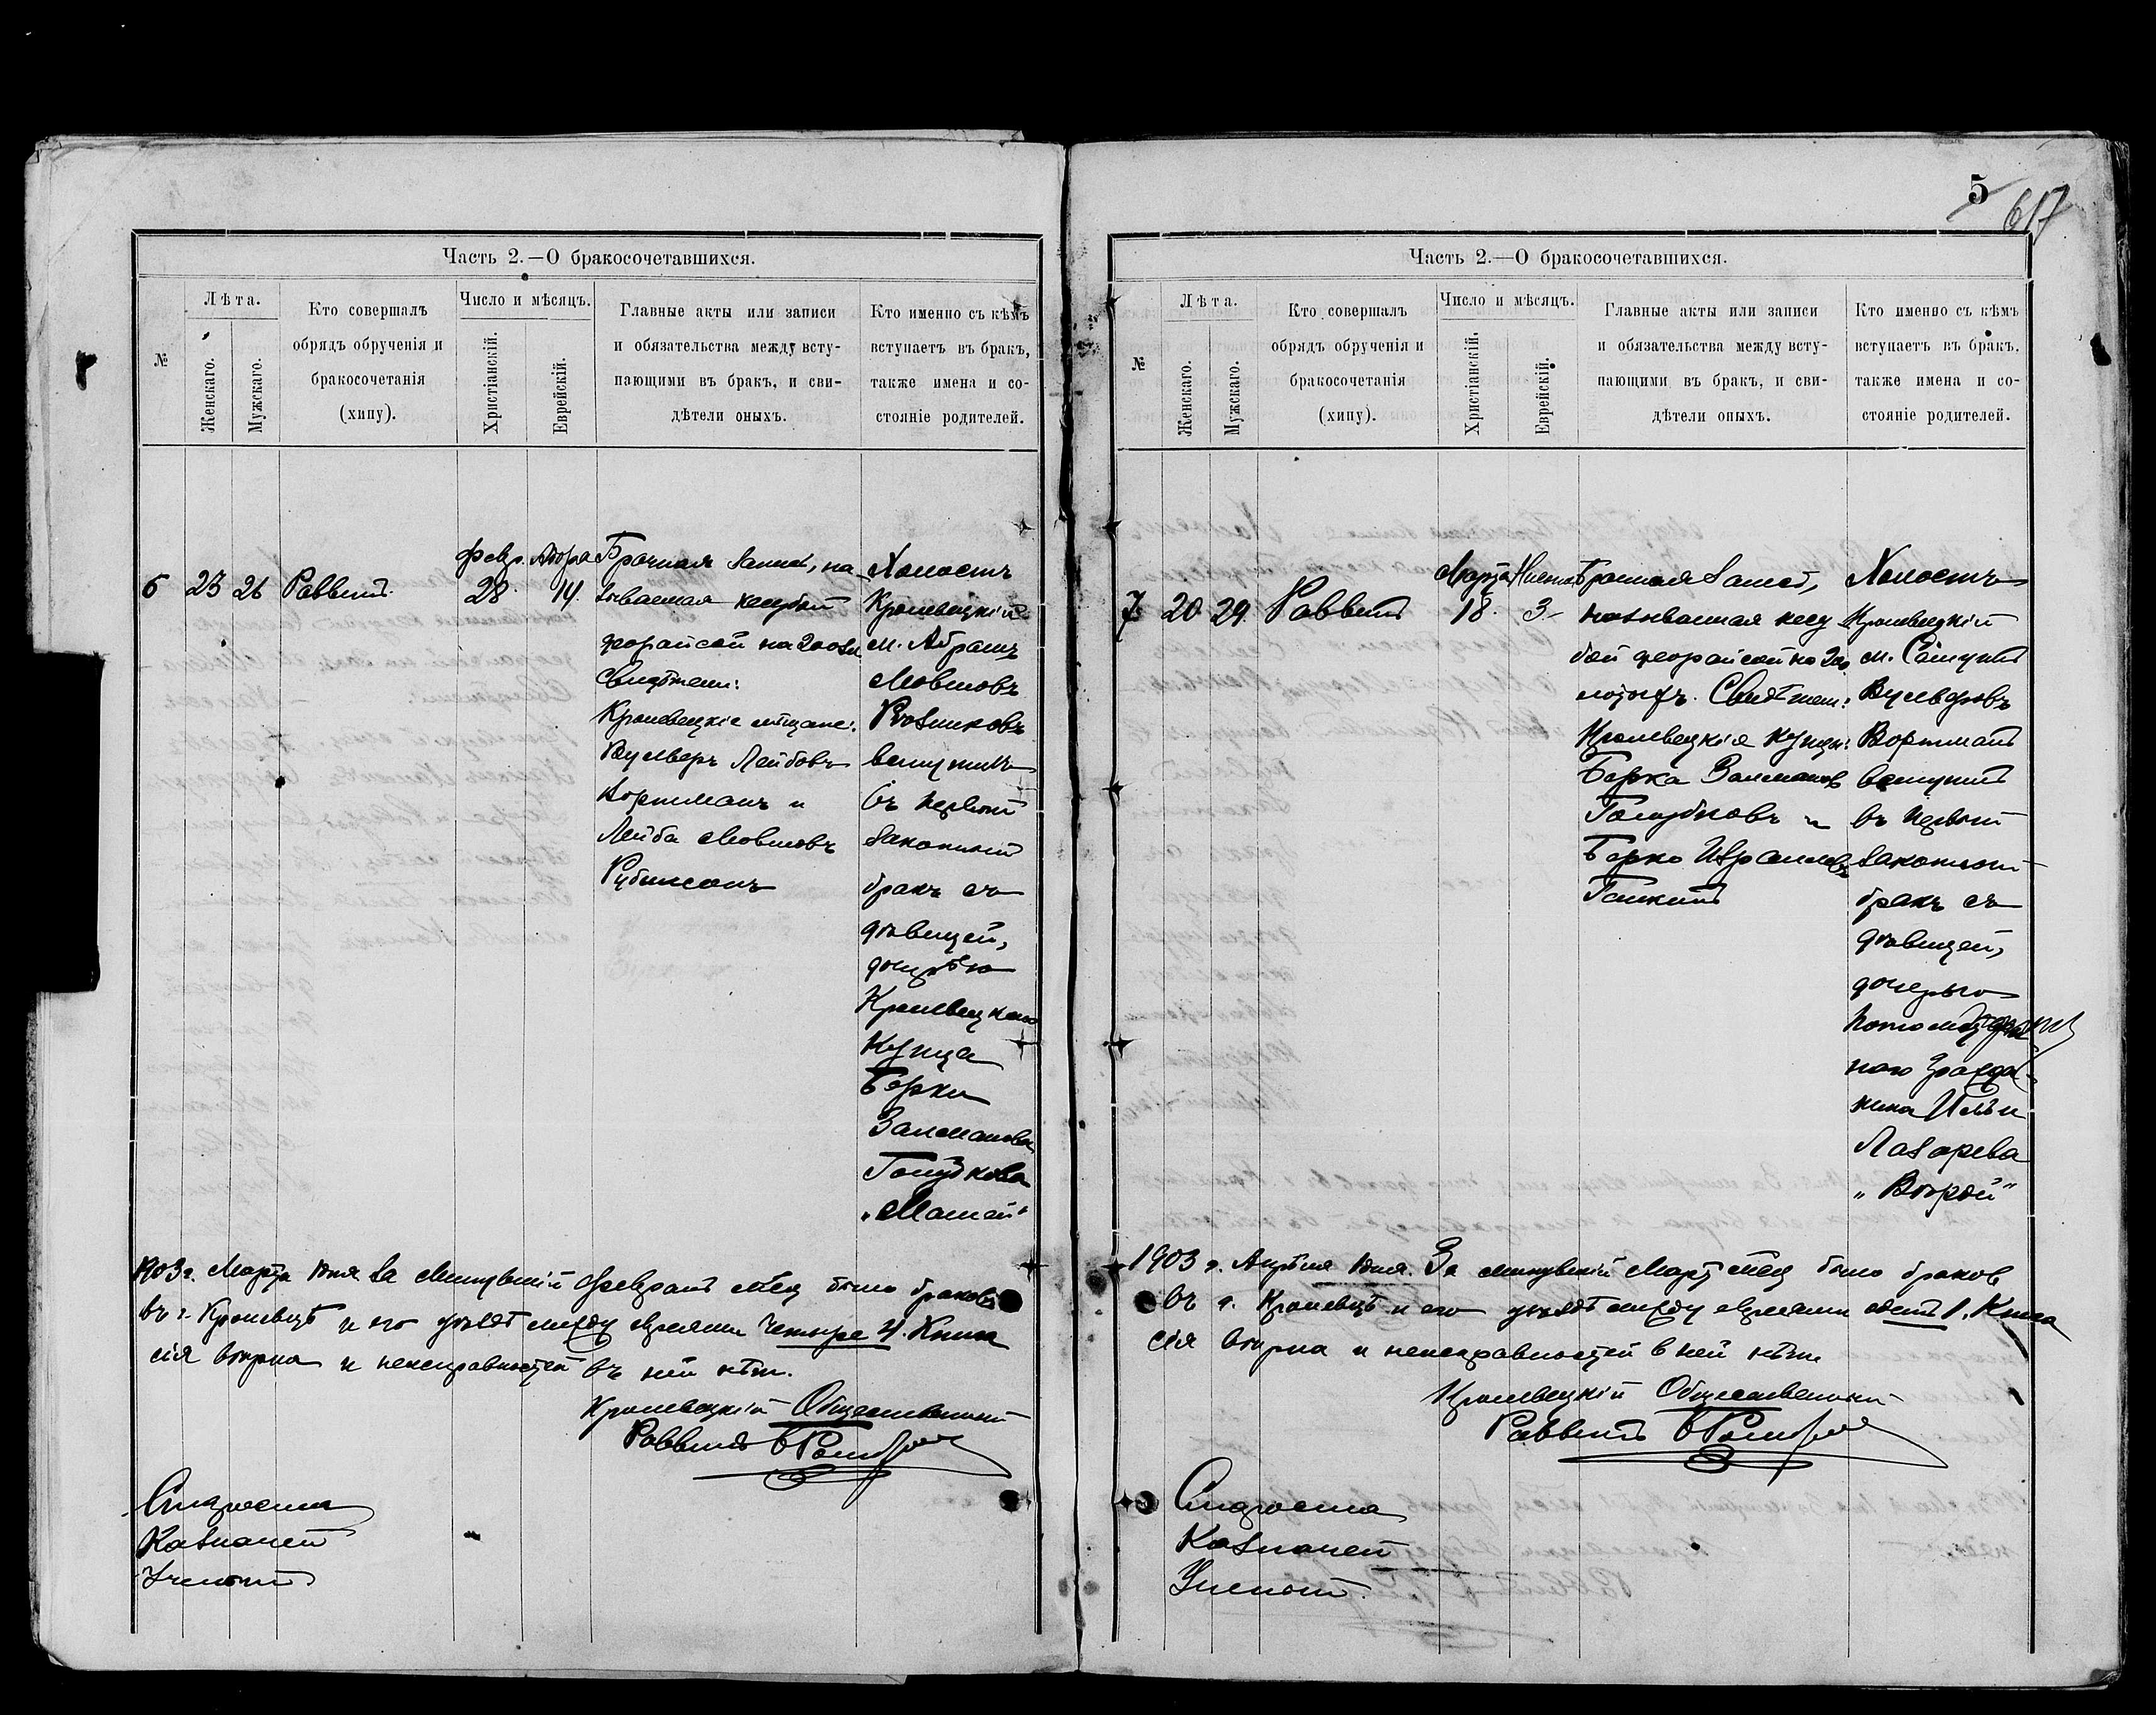 5
617
Часть 2.—О бракосочетавшихся.
№
Лѣта.
Женскаго.
Мужскаго.
Кто совершалъ
обрядъ обрученія и
бракосочетанія
(хипу).
Число и мѣсяцъ.
Христіанскій.
Еврейскій.
Главные акты или записи
и обязательства между всту-
пающими въ бракъ, и сви-
дѣтели оныхъ.
Кто именно съ кѣмъ
вступаетъ въ бракъ,
также имена и со-
стояніе родителей.
6
23
26
Раввинъ.
Февр.
28.
Адора
14.
Брачная запись, на-
зываемая кесубой
дорайсой на 200 зл.
Свидѣтели:
Кролевецкіе мѣщане:
Вульверъ Лейбовъ
Вортманъ и
Лейба Мовшовъ
Рубинсонъ
Холостъ
Кролевецкій
м. Абрамъ
Мовшовъ
вступилъ
въ первый
законный
бракъ съ
дѣвицей,
дочерью
Кролевецкаго
Купца
Берки
Залманова
Голубкова
„Машей“
1903 г. Марта 1 дня за минувшій Февраль м-ць было браковъ
въ г. Кролевцѣ и его уѣздѣ между евреями четыре 4. Книга
сія вѣрна и неисправностей въ ней нѣтъ.
Кролевецкій Общественный
Раввинъ
Староста
Казначей
Ученый
Часть 2.—О бракосочетавшихся.
№
Лѣта.
Женскаго.
Мужскаго.
Кто совершалъ
обрядъ обрученія и
бракосочетанія
(хипу).
Число и мѣсяцъ.
Христіанскій.
Еврейскій.
Главные акты или записи
и обязательства между всту-
пающими въ бракъ, и сви-
дѣтели оныхъ.
Кто именно съ кѣмъ
вступаетъ въ бракъ,
также имена и со-
стояніе родителей.
7
20
29.
Раввинъ
Марта
18.
Нисона
3
Брачная запись,
называемая кесу-
бой дорайсой на 200
злотыхъ. Свидѣтели:
Кролевецкіе купцы:
Берка Залмановъ
Голубковъ и
Берко Израилевъ
Холостъ
Кролевецкій
м. Самуилъ
Вульфовъ
Вортманъ
вступилъ
въ первый
законный
бракъ съ
дѣвицей,
дочерью
наго Гражда-
нина Ильи
Лазарева
„Вѣрой“
1903 г. Апрѣля 1 дня. За минувшій Мартъ м-ць было браковъ
въ г. Кролевцѣ и его уѣздѣ между евреями одинъ 1. Книга
сія вѣрна и неисправностей в ней нѣтъ
Кролевецкій Общественный
Раввинъ
Староста
Казначей
Ученый.